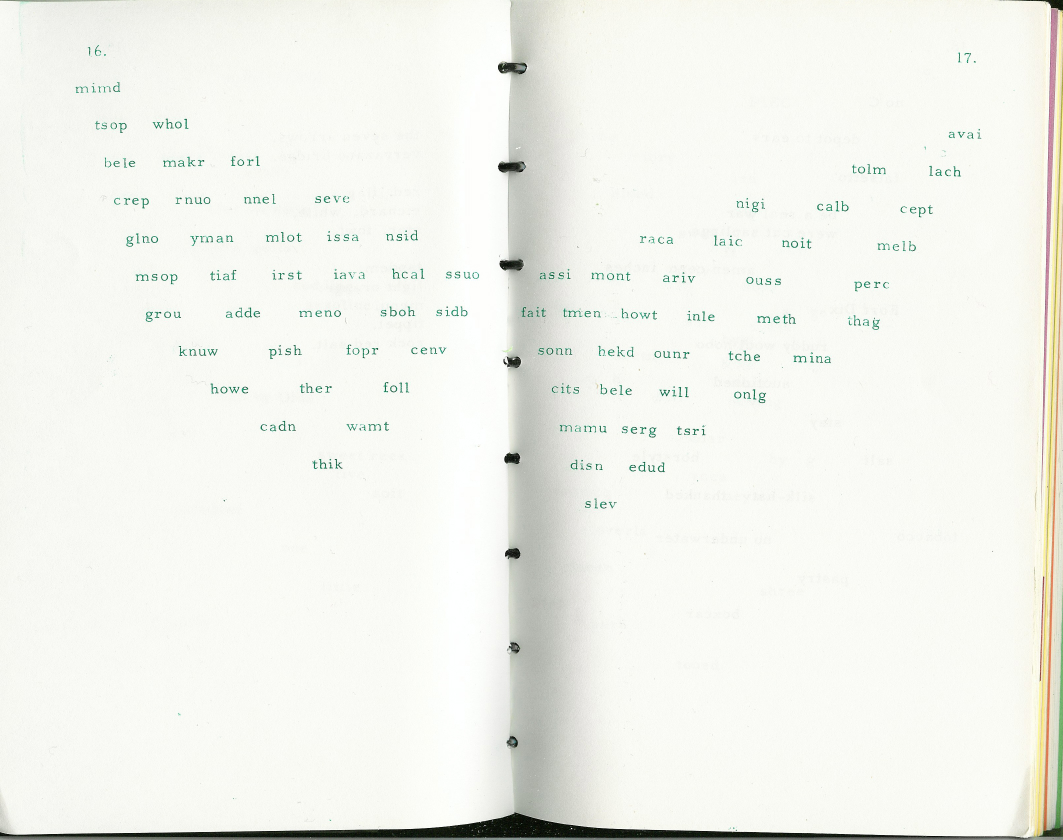 16.
mimd
tsop whol
bele makr forl
crep rnuo nnel seve
glno yman mlot issa nsid
msop tiaf irst iava hcal ssuo
grou adde meno sboh sidb
knuw pish fopr cenv
howe ther foll
cadn wamt
thik
17.
avai
tolm lach
nigi calb cept
raca laic noit melb
assi mont ariv ouss perc
fait tmen howt inle meth thag
sonn hekd ounr tche mina
cits bele will onlg
mamu serg tsri
disn edud
slev